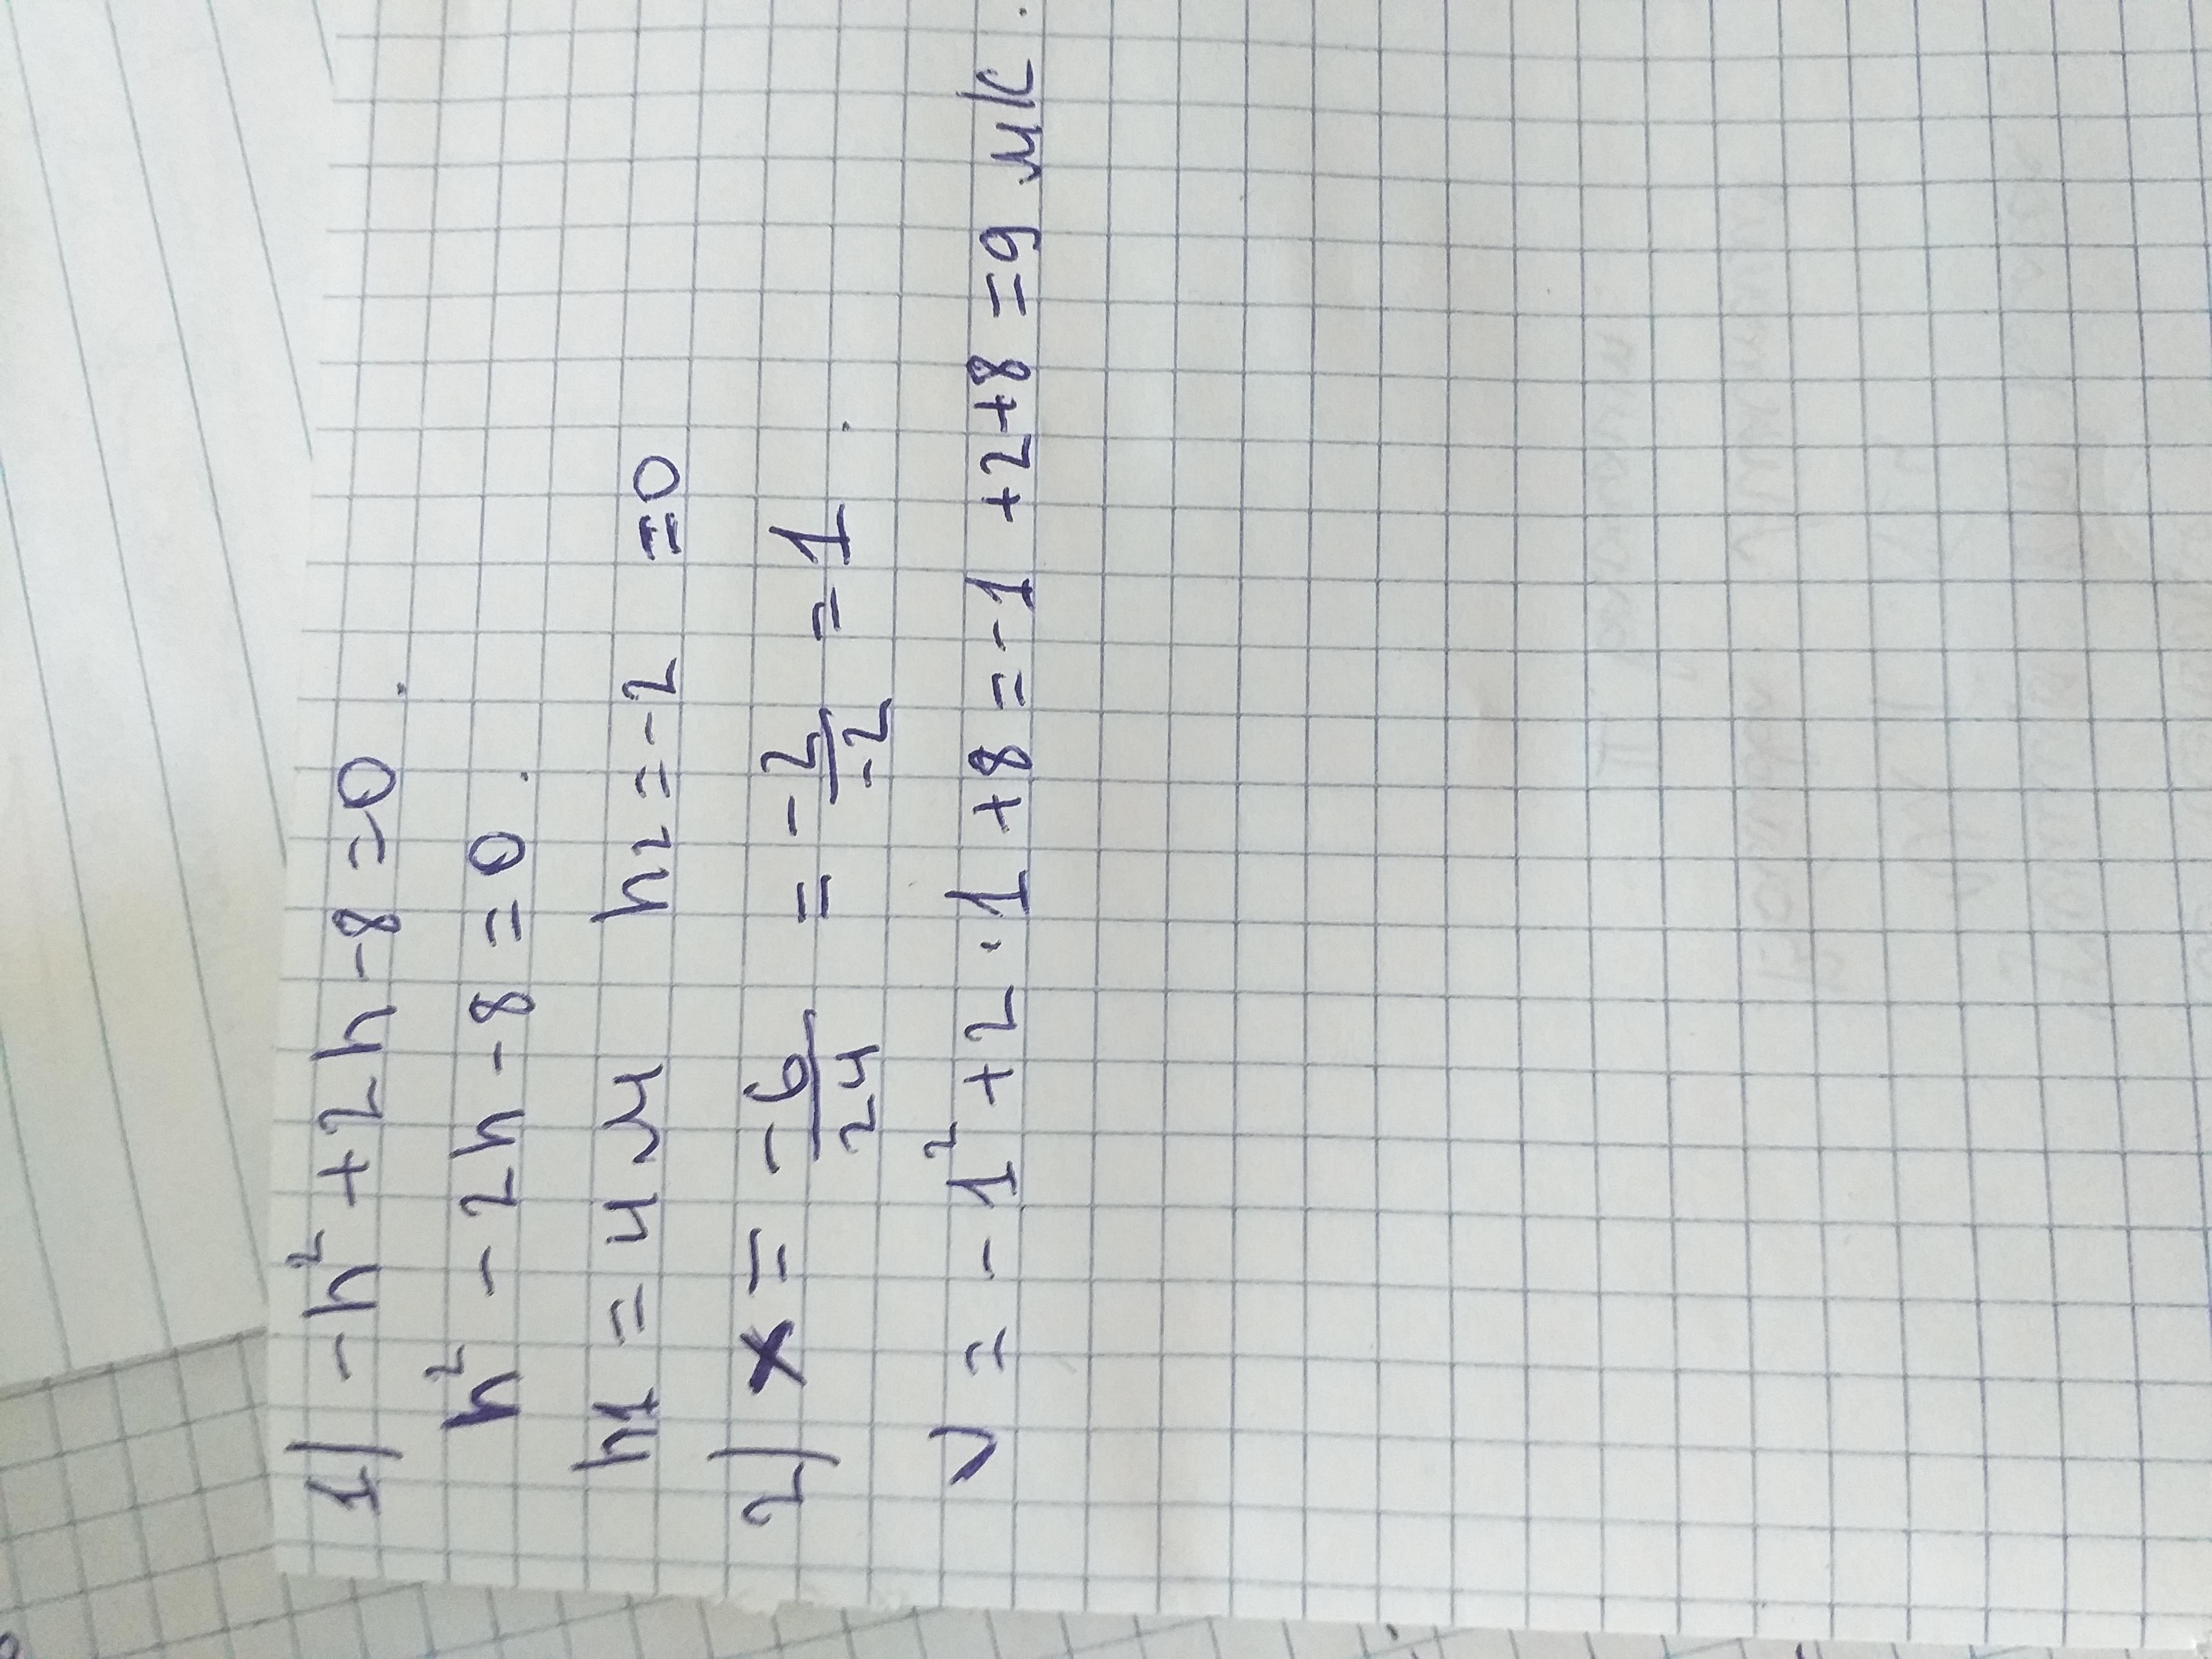 1) -h² + 2h - 8 = 0
h² - 2h - 8 = 0.
h1 = 4 м h2 = -2 = 0
2) x = -6/24 = -2/-2 = 1
V = -1² + 2 · 1 + 8 = -1 + 2 + 8 = 9 мк